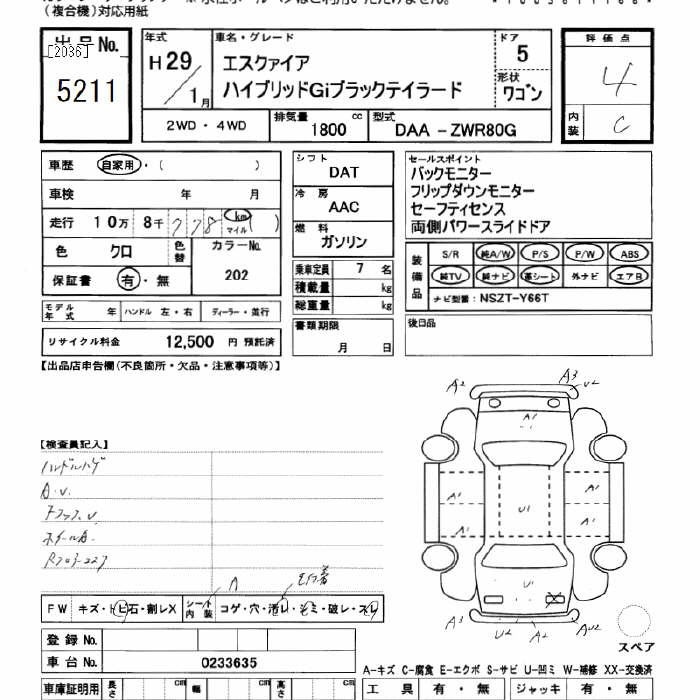 (複合機)対応用紙
出品No.
[2036]
5211
年式
H29/1月
車名・グレード
エスクァイア
ハイブリッドGiブラックテイラード
ドア
5
形状
ワゴン
評価点
4
内装
C
2WD・4WD
排気量 1800 cc
型式 DAA-ZWR80G
車歴 自家用・( )
車検 年 月
走行 10万 8千 778 km マイル ( )
色 クロ
色替
カラーNo.
202
保証書 有・無
モデル年式 年
ハンドル 左・右
ディーラー・並行
リサイクル料金 12,500 円 預託済
シフト
DAT
冷房
AAC
燃料
ガソリン
乗車定員 7 名
積載量 kg
総重量 kg
書類期限
月 日
セールスポイント
バックモニター
フリップダウンモニター
セーフティセンス
両側パワースライドドア
装備品
S/R 純A/W P/S P/W ABS
純TV 純ナビ 革シート 外ナビ エアB
ナビ型番: NSZT-Y66T
後日品
【出品店申告欄(不良箇所・欠品・注意事項等)】
【検査員記入】
ハンドルハゲ
A.U.
R703-227
FW キズ・トビ石・割レX
シート内装 コゲ・穴・汚レ・シミ・破レ・スレ
登録No.
車台No. 0233635
車庫証明用 長さ cm 幅 cm 高さ cm
A2 A3 U2
A1
A1 A1
U1
A1 A1
U1
U2 A2 AU2
スペア
A-キズ C-腐食 E-エクボ S-サビ U-凹ミ W-補修 XX-交換済
工具 有・無 ジャッキ 有・無